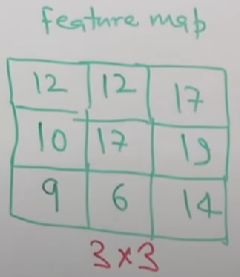 feature map
12 12 17
10 17 19
9 6 14
3×3